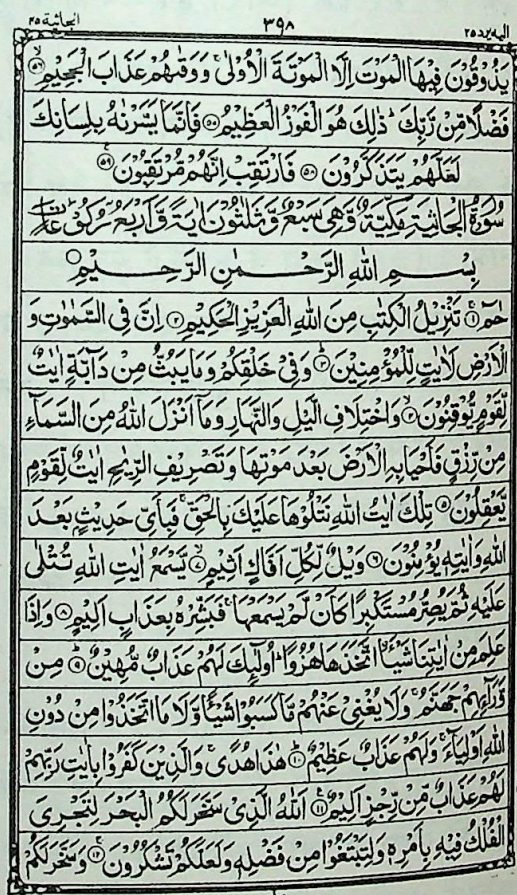 الیہ یرد ۲۵ ۳۹۸ الجاثیۃ ۴۵
يَذُوْقُوْنَ فِيْهَا الْمَوْتَ اِلَّا الْمَوْتَةَ الْاُوْلٰى ۚ وَوَقٰىهُمْ عَذَابَ الْجَحِيْمِ ۙ۝۵۶
فَضْلًا مِّنْ رَّبِّكَ ؕ ذٰلِكَ هُوَ الْفَوْزُ الْعَظِيْمُ ۝۵۷ فَاِنَّمَا يَسَّرْنٰهُ بِلِسَانِكَ
لَعَلَّهُمْ يَتَذَكَّرُوْنَ ۝۵۸ فَارْتَقِبْ اِنَّهُمْ مُّرْتَقِبُوْنَ ۠۝۵۹
سُوْرَةُ الْجَاثِيَةِ مَكِّيَّةٌ وَّهِيَ سَبْعٌ وَّثَلٰثُوْنَ اٰيَةً وَّاَرْبَعُ رُكُوْعَاتٍ
بِسْمِ اللّٰهِ الرَّحْمٰنِ الرَّحِيْمِ
حٰمٓ ۚ۝۱ تَنْزِيْلُ الْكِتٰبِ مِنَ اللّٰهِ الْعَزِيْزِ الْحَكِيْمِ ۝۲ اِنَّ فِى السَّمٰوٰتِ وَ
الْاَرْضِ لَاٰيٰتٍ لِّلْمُؤْمِنِيْنَ ؕ۝۳ وَفِيْ خَلْقِكُمْ وَمَا يَبُثُّ مِنْ دَآبَّةٍ اٰيٰتٌ
لِّقَوْمٍ يُّوْقِنُوْنَ ۙ۝۴ وَاخْتِلَافِ الَّيْلِ وَالنَّهَارِ وَمَآ اَنْزَلَ اللّٰهُ مِنَ السَّمَآءِ
مِنْ رِّزْقٍ فَاَحْيَا بِهِ الْاَرْضَ بَعْدَ مَوْتِهَا وَتَصْرِيْفِ الرِّيٰحِ اٰيٰتٌ لِّقَوْمٍ
يَّعْقِلُوْنَ ۝۵ تِلْكَ اٰيٰتُ اللّٰهِ نَتْلُوْهَا عَلَيْكَ بِالْحَقِّ ۚ فَبِاَيِّ حَدِيْثٍۢ بَعْدَ
اللّٰهِ وَاٰيٰتِهٖ يُؤْمِنُوْنَ ۝۶ وَيْلٌ لِّكُلِّ اَفَّاكٍ اَثِيْمٍ ۙ۝۷ يَّسْمَعُ اٰيٰتِ اللّٰهِ تُتْلٰى
عَلَيْهِ ثُمَّ يُصِرُّ مُسْتَكْبِرًا كَاَنْ لَّمْ يَسْمَعْهَا ۚ فَبَشِّرْهُ بِعَذَابٍ اَلِيْمٍ ۝۸ وَاِذَا
عَلِمَ مِنْ اٰيٰتِنَا شَيْـًٔا اتَّخَذَهَا هُزُوًا ؕ اُولٰٓئِكَ لَهُمْ عَذَابٌ مُّهِيْنٌ ؕ۝۹ مِنْ
وَّرَآئِهِمْ جَهَنَّمُ ۚ وَلَا يُغْنِيْ عَنْهُمْ مَّا كَسَبُوْا شَيْـًٔا وَّلَا مَا اتَّخَذُوْا مِنْ دُوْنِ
اللّٰهِ اَوْلِيَآءَ ۚ وَلَهُمْ عَذَابٌ عَظِيْمٌ ؕ۝۱۰ هٰذَا هُدًى ۚ وَالَّذِيْنَ كَفَرُوْا بِاٰيٰتِ رَبِّهِمْ
لَهُمْ عَذَابٌ مِّنْ رِّجْزٍ اَلِيْمٌ ۠۝۱۱ اَللّٰهُ الَّذِيْ سَخَّرَ لَكُمُ الْبَحْرَ لِتَجْرِيَ
الْفُلْكُ فِيْهِ بِاَمْرِهٖ وَلِتَبْتَغُوْا مِنْ فَضْلِهٖ وَلَعَلَّكُمْ تَشْكُرُوْنَ ۚ۝۱۲ وَسَخَّرَ لَكُمْ